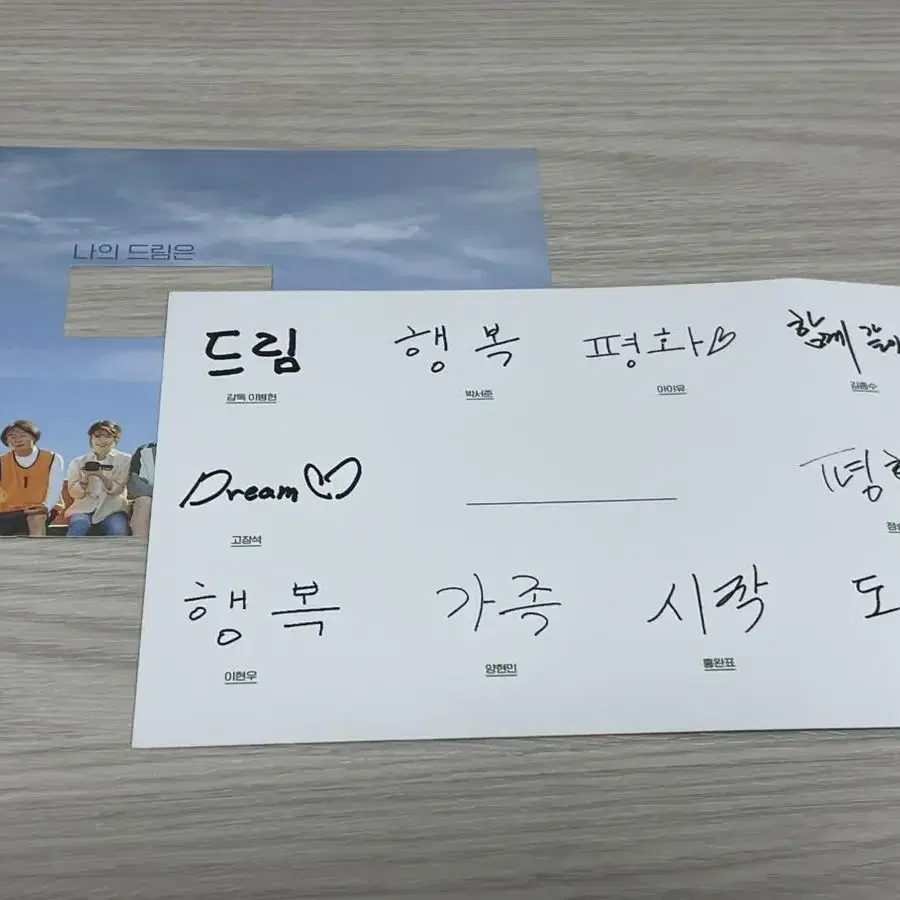 나의 드림은
드림 행복 평화 함께
감독 이병헌 박서준 아이유 김종수
Dream
고창석
행복 가족 시작 도
이현우 양현민 홍완표